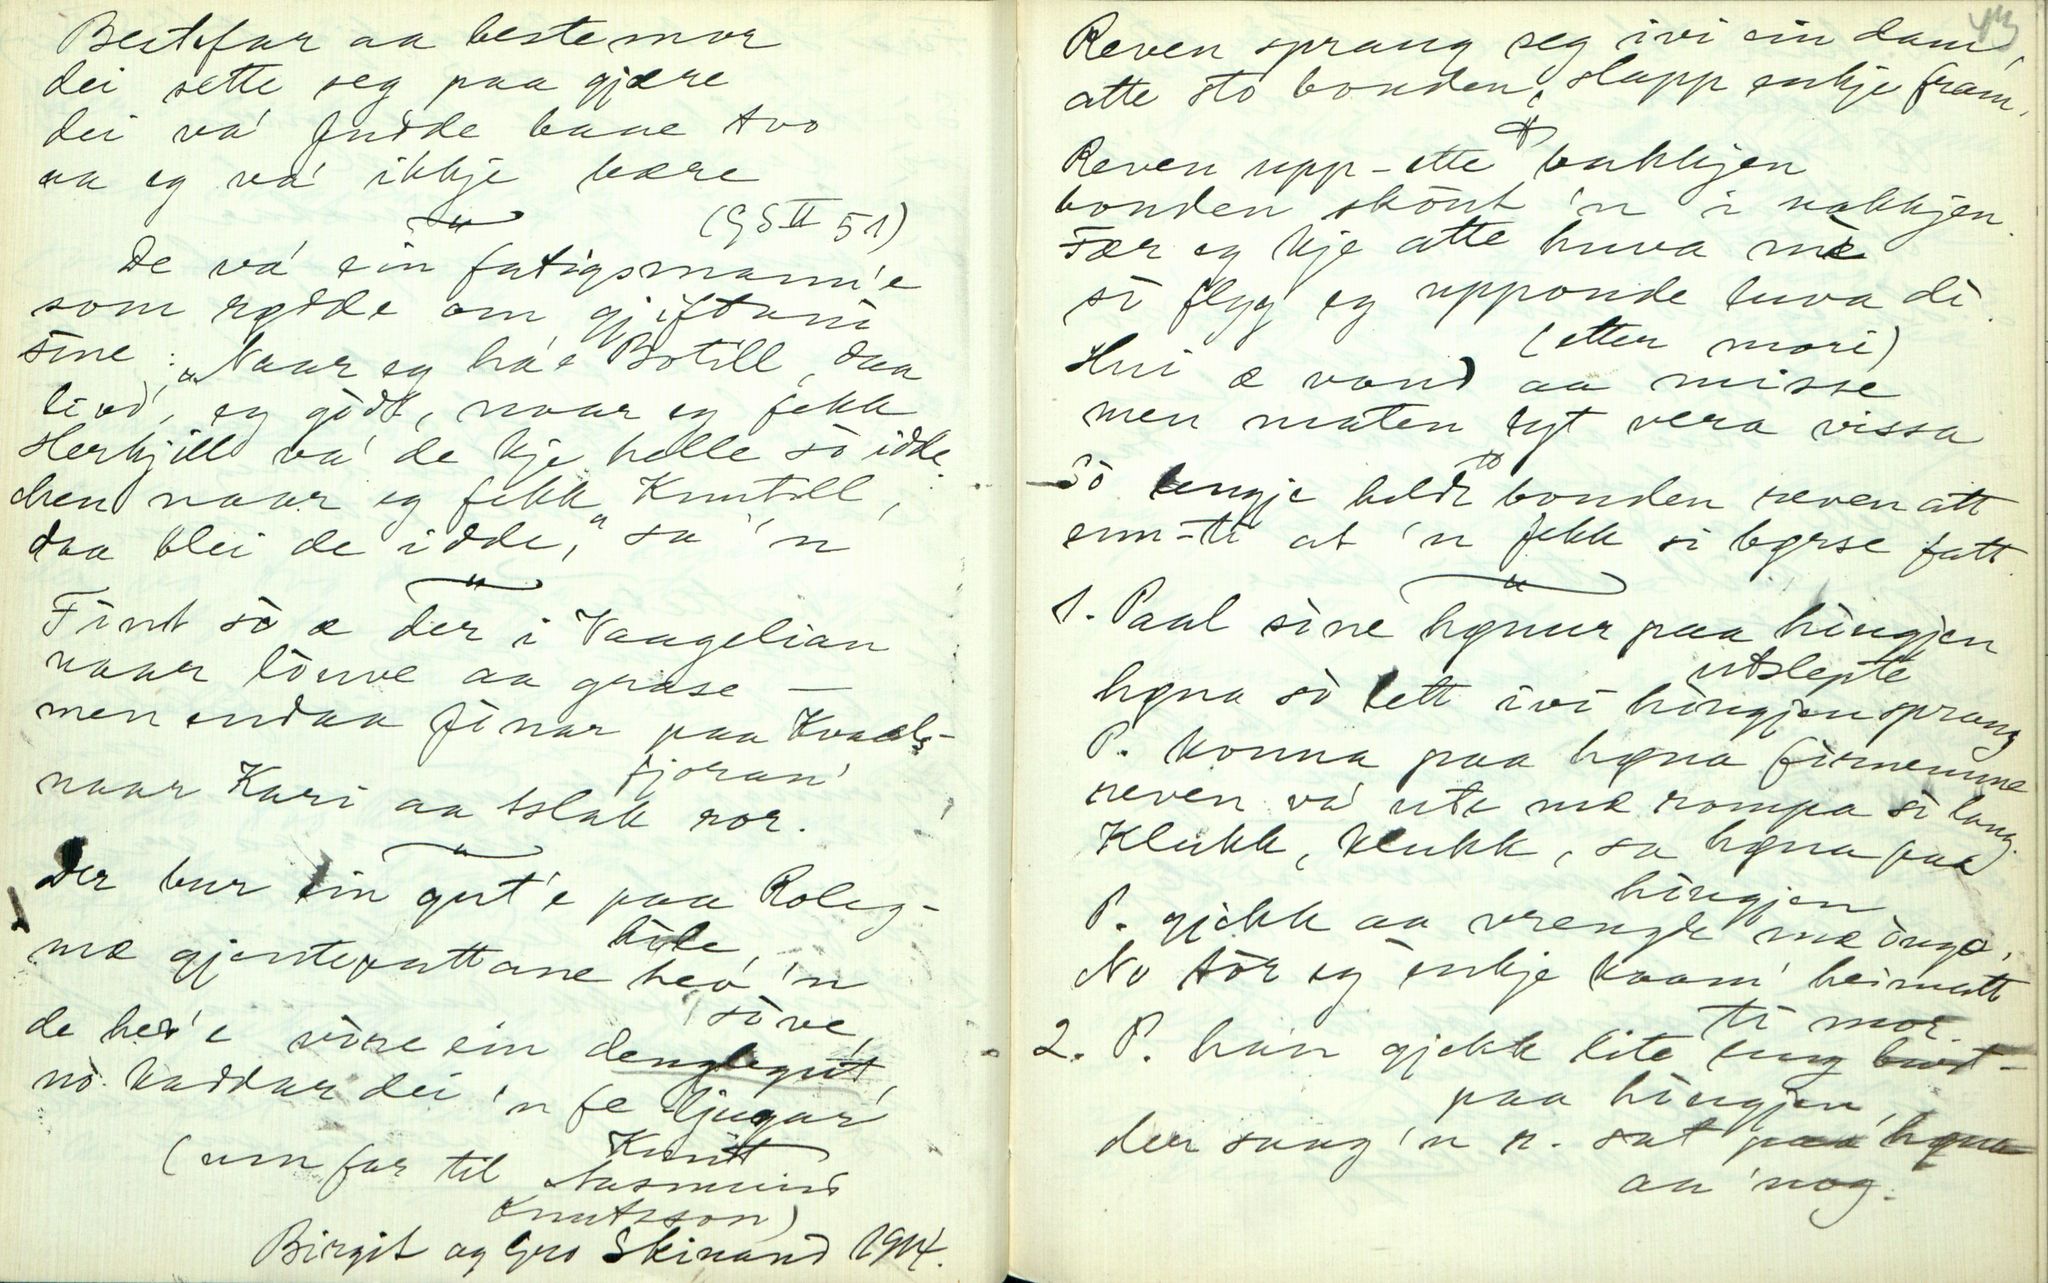 Bestefar aa bestemor
dei sette seg paa gjære
dei va' fudde baae tvo
aa eg va' ikkje bære
(GS II 51)
De va' ein fatigsmann'e
som rødde om gjiftanı
sine: „Naar eg ha'e Botill, daa
livd' eg godt, naar eg fekk
Herkjill va' de kje helle so idde
men naar eg fekk Knutill,
daa blei de idde," sa 'n
Fint so æ der i Vaagelian
naar louve aa grase —
men endaa finar paa Kvaals-
fjoran'
naar Kari aa Aslak ror.
Der bur ein gut'e paa Roleg-
hile,
mæ gjenteputtane hev 'n
sove,
de hev'e vore ein denglegut,
no kaddar dei 'n fe ljugar'
(um far til Knut
Aasmund
Knutsson)
Birgit og Gro Skinand 1914.
43
Reven sprang seg ivi ein dam,
atte sto bonden, slapp inkje fram.
Reven upp-ette bakkjen
bonden skout 'n i nakkjen.
Fær eg kje atte huva mi
so flyg eg upponde luva di.
(etter mori)
Hui æ vond aa misse
men maten lyt vera vissa
So lengje heldt bonden reven att
enn-ti at 'n fekk si byrse fatt.
1. Paal sine hønur paa hougjen
utslepte
høna so lett ivi hougjen sprang
P. konna paa høna fornemme
reven va' ute mæ rompa so lang.
Klukk, klukk, sa høna paa
hougjen
P. gjekk aa vrengde mæ ougo.
No tor eg inkje kaam' heimatt
ti mor.
2. P. han gjekk lite eng bort-
paa hougjen,
der saag 'n r. sat paa høna
aa nog.